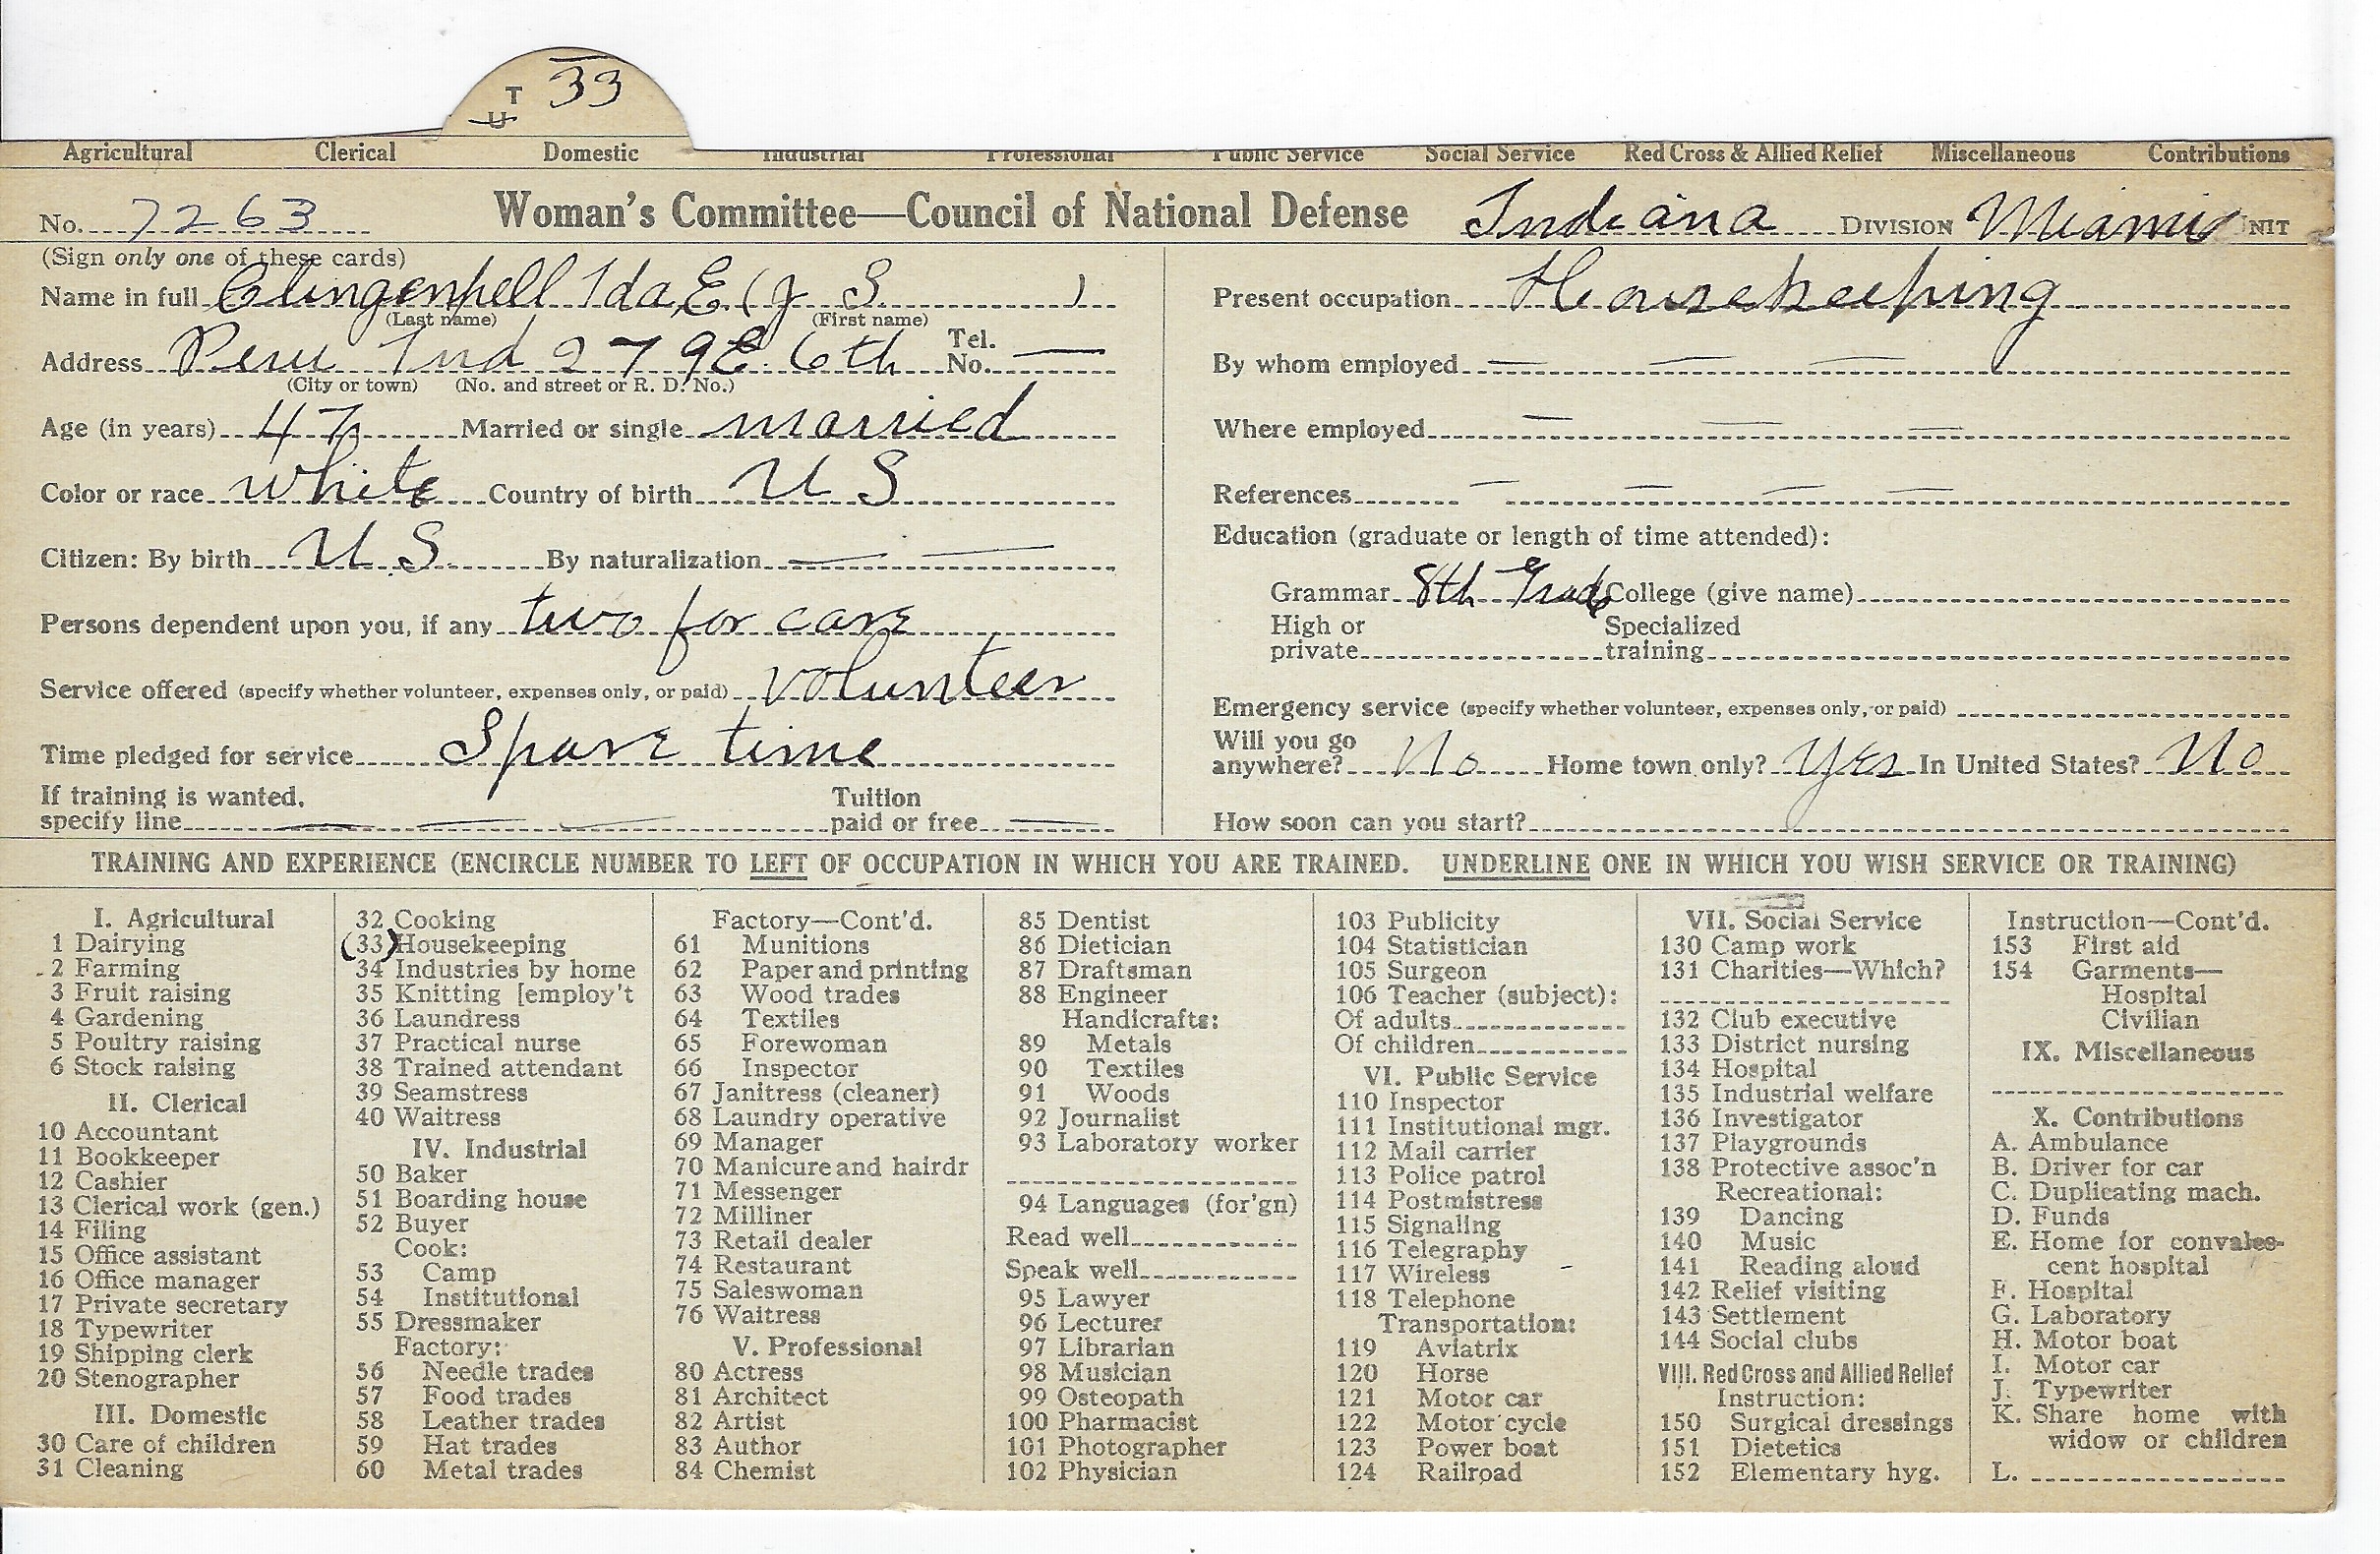 T 33
U
Agricultural Clerical Domestic Industrial Professional Public Service Social Service Red Cross & Allied Relief Miscellaneous Contributions
No. 7263 Woman's Committee—Council of National Defense Indiana DIVISION Miami UNIT
(Sign only one of these cards)
Name in full Clingenpell Ida, E (J S )
(Last name) (First name)
Address Peru Ind 279 E. 6th Tel. No. —
(City or town) (No. and street or R. D. No.)
Age (in years) 47 Married or single married
Color or race white Country of birth U S
Citizen: By birth U. S. By naturalization — —
Persons dependent upon you, if any two for care
Service offered (specify whether volunteer, expenses only, or paid) volunteer
Time pledged for service Spare time
If training is wanted, specify line — — — Tuition paid or free —
Present occupation Housekeeping
By whom employed — — —
Where employed — — —
References — — — —
Education (graduate or length of time attended):
Grammar 8th Grade College (give name)
High or private Specialized training
Emergency service (specify whether volunteer, expenses only, or paid)
Will you go anywhere? No Home town only? Yes In United States? No
How soon can you start?
TRAINING AND EXPERIENCE (ENCIRCLE NUMBER TO LEFT OF OCCUPATION IN WHICH YOU ARE TRAINED. UNDERLINE ONE IN WHICH YOU WISH SERVICE OR TRAINING)
I. Agricultural
1 Dairying
2 Farming
3 Fruit raising
4 Gardening
5 Poultry raising
6 Stock raising
II. Clerical
10 Accountant
11 Bookkeeper
12 Cashier
13 Clerical work (gen.)
14 Filing
15 Office assistant
16 Office manager
17 Private secretary
18 Typewriter
19 Shipping clerk
20 Stenographer
III. Domestic
30 Care of children
31 Cleaning
32 Cooking
(33) Housekeeping
34 Industries by home
35 Knitting [employ't
36 Laundress
37 Practical nurse
38 Trained attendant
39 Seamstress
40 Waitress
IV. Industrial
50 Baker
51 Boarding house
52 Buyer
Cook:
53 Camp
54 Institutional
55 Dressmaker
Factory:
56 Needle trades
57 Food trades
58 Leather trades
59 Hat trades
60 Metal trades
Factory—Cont'd.
61 Munitions
62 Paper and printing
63 Wood trades
64 Textiles
65 Forewoman
66 Inspector
67 Janitress (cleaner)
68 Laundry operative
69 Manager
70 Manicure and hairdr
71 Messenger
72 Milliner
73 Retail dealer
74 Restaurant
75 Saleswoman
76 Waitress
V. Professional
80 Actress
81 Architect
82 Artist
83 Author
84 Chemist
85 Dentist
86 Dietician
87 Draftsman
88 Engineer
Handicrafts:
89 Metals
90 Textiles
91 Woods
92 Journalist
93 Laboratory worker
94 Languages (for'gn)
Read well
Speak well
95 Lawyer
96 Lecturer
97 Librarian
98 Musician
99 Osteopath
100 Pharmacist
101 Photographer
102 Physician
103 Publicity
104 Statistician
105 Surgeon
106 Teacher (subject):
Of adults
Of children
VI. Public Service
110 Inspector
111 Institutional mgr.
112 Mail carrier
113 Police patrol
114 Postmistress
115 Signaling
116 Telegraphy
117 Wireless
118 Telephone
Transportation:
119 Aviatrix
120 Horse
121 Motor car
122 Motor cycle
123 Power boat
124 Railroad
VII. Social Service
130 Camp work
131 Charities—Which?
132 Club executive
133 District nursing
134 Hospital
135 Industrial welfare
136 Investigator
137 Playgrounds
138 Protective assoc'n
Recreational:
139 Dancing
140 Music
141 Reading aloud
142 Relief visiting
143 Settlement
144 Social clubs
VIII. Red Cross and Allied Relief
Instruction:
150 Surgical dressings
151 Dietetics
152 Elementary hyg.
Instruction—Cont'd.
153 First aid
154 Garments—
Hospital
Civilian
IX. Miscellaneous
X. Contributions
A. Ambulance
B. Driver for car
C. Duplicating mach.
D. Funds
E. Home for convales-
cent hospital
F. Hospital
G. Laboratory
H. Motor boat
I. Motor car
J. Typewriter
K. Share home with
widow or children
L.